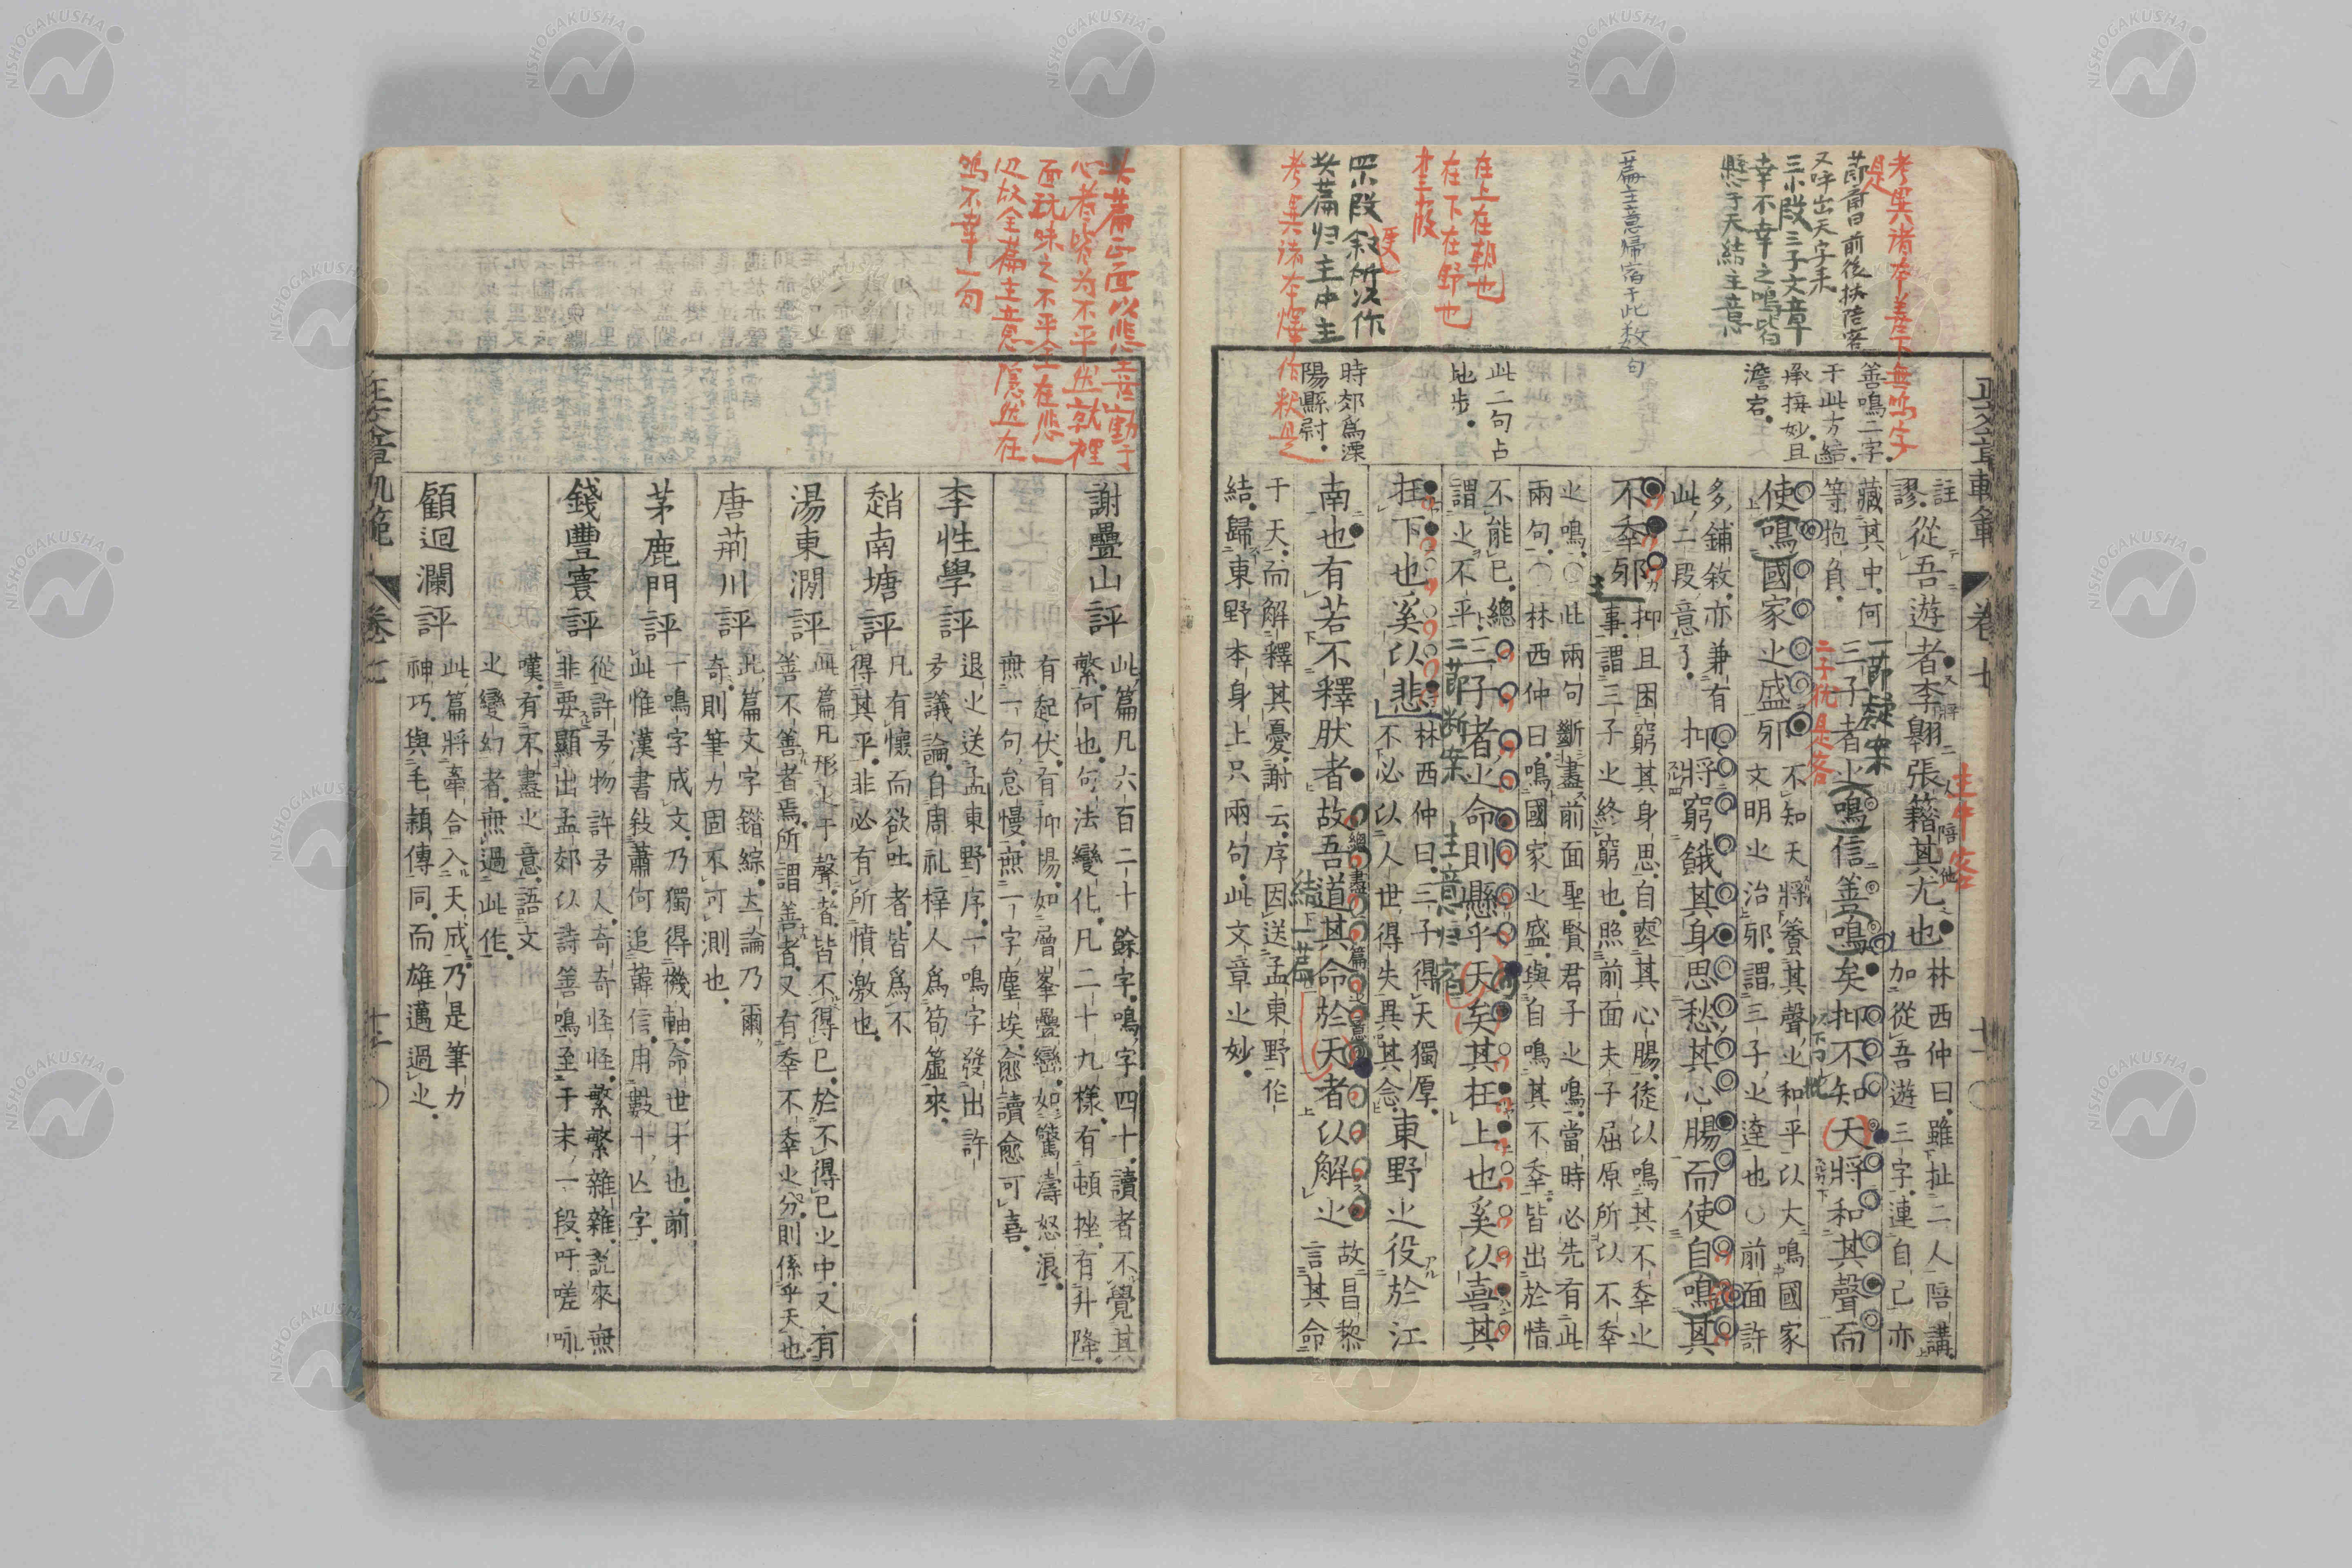 考異諸本善下無鳴字
是
節斎曰前後扶陪客
又呼出天字来
三小段三子文章
幸不幸之鳴皆
懸于天結主意
一篇主意帰宿于此数句
在上在朝也
在下在野也
一篇归主中主
善鳴二字
于此方結
承接妙且
澹宕
此二句占
地步
時郊為溧
陽縣尉
正文章軌範
卷七
註
謬從吾遊者李翺張籍其尤也
林西仲曰雖扯二人陪講
加從吾遊三字連自己亦
藏其中何
等抱負
三子者之鳴信善鳴矣抑不知天將和其聲而
一節疑案
二子犹是客
主中客
使鳴國家之盛邪
不知天將養其聲之和平以大鳴國家
文明之治邪謂三子之達也○前面許
多鋪敘亦兼有
此二段意了
抑將窮餓其身思愁其心腸而使自鳴其
不幸邪
抑且困窮其身思自慝其心腸徒以鳴其不幸之
事謂三子之終窮也照前面夫子屈原所以不幸
之鳴○此兩句斷盡前面聖賢君子之鳴當時必先有此
兩句○林西仲曰鳴國家之盛與自鳴其不幸皆出於情
不能已總
謂之不平
三子者之命則懸乎天矣其在上也奚以喜其
二節断案
主意归宿
在下也奚以悲
林西仲曰三子得天獨厚
不必以人世得失異其念
東野之役於江
南也有若不釋肰者故吾道其命於天者以解之
故昌黎
言其命
結一篇
于天而解釋其憂謝云序因送孟東野作
結歸東野本身上只兩句此文章之妙
心者皆为不平然就裡
面玩味之不平全在悲一
边故全篇主意隠然在
鳴不幸一句
謝疊山評
此篇凡六百二十餘字鳴字四十讀者不覺其
繁何也句法變化凡二十九樣有頓挫有升降
有起伏有抑揚如層峯疊巒如驚濤怒浪
無一句怠慢無一字塵埃愈讀愈可喜
李性學評
退之送孟東野序一鳴字發出許
多議論自周礼梓人為筍簴來
趙南塘評
凡有懷而欲吐者皆為不
得其平非必有所憤激也
湯東澗評
此篇凡形之于聲者皆不得已於不得已之中又有
善不善者焉所謂善者又有幸不幸之分則係乎天也
唐荊川評
此篇文字錯綜立論乃爾
奇則筆力固不可測也
茅鹿門評
一鳴字成文乃獨得機軸命世才也前
此惟漢書敍蕭何追韓信用數十亾字
錢豐寰評
從許多物許多人奇奇怪怪繁繁雜雜說來無
非要顯出孟郊以詩善鳴至于末一段吁嗟咏
嘆有不盡之意語文
之變幻者無過此作
顧迴瀾評
此篇將牽合入天成乃是筆力
神巧與毛穎傳同而雄邁過之
正文章軌範
卷七